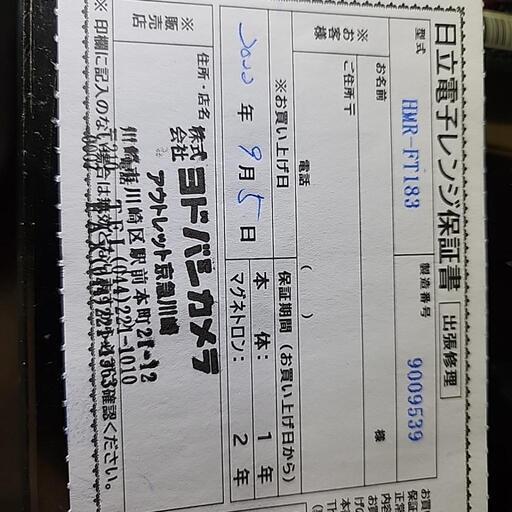 日立電子レンジ保証書 出張修理
型式 HMR-FT183 製造番号 9009539
※お客様
お名前 様
ご住所 〒
電話 ( )
※お買い上げ日
年 9月5日
保証期間(お買い上げ日から)
本体: 1年
マグネトロン: 2年
※販売店
住所・店名
株式会社 ヨドバシカメラ
アウトレット京急川崎
川崎市川崎区駅前本町21-12
TEL(044)221-1010
※印欄に記入のない場合は無効と
確認ください。